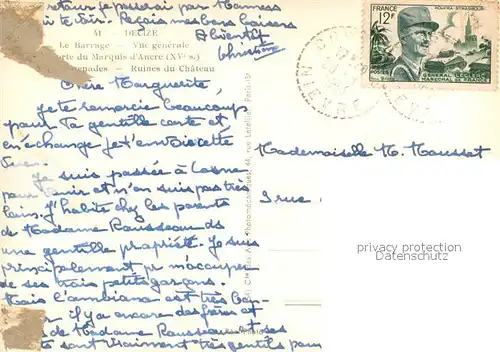 retour je passerai par Mamers
te voir. Reçois mes bons baisers
A bientôt
Christiane
41 - DECIZE
Le Barrage - Vue générale
Porte du Marquis d'Ancre (XVe s.)
Promenades - Ruines du Château
Chère Marguerite,
Je te remercie beaucoup
pour ta gentille carte et
en échange je t'envoie cette
vue.
Je suis passée à Cosne
pour venir et n'en suis pas très
loin. J'habite chez les parents
de Madame Rousseau ds
une gentille propriété. Je suis
principalement pr m'occuper
de ses trois petits garçons.
Mais l'ambiance est très
il y a encore des frères et
de Madame Rousseau et ses
sont vraiment très gentils pour
Mademoiselle M. Mousset
3 rue
FRANCE
12F
KOUFRA STRASBOURG
POSTES
GENERAL LECLERC
MARECHAL DE FRANCE
NIEVRE
privacy protection
DATENSCHUTZ